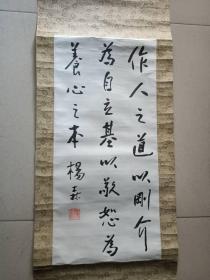 作人之道以剛介
為自立基以敬恕為
養心之本 楊森